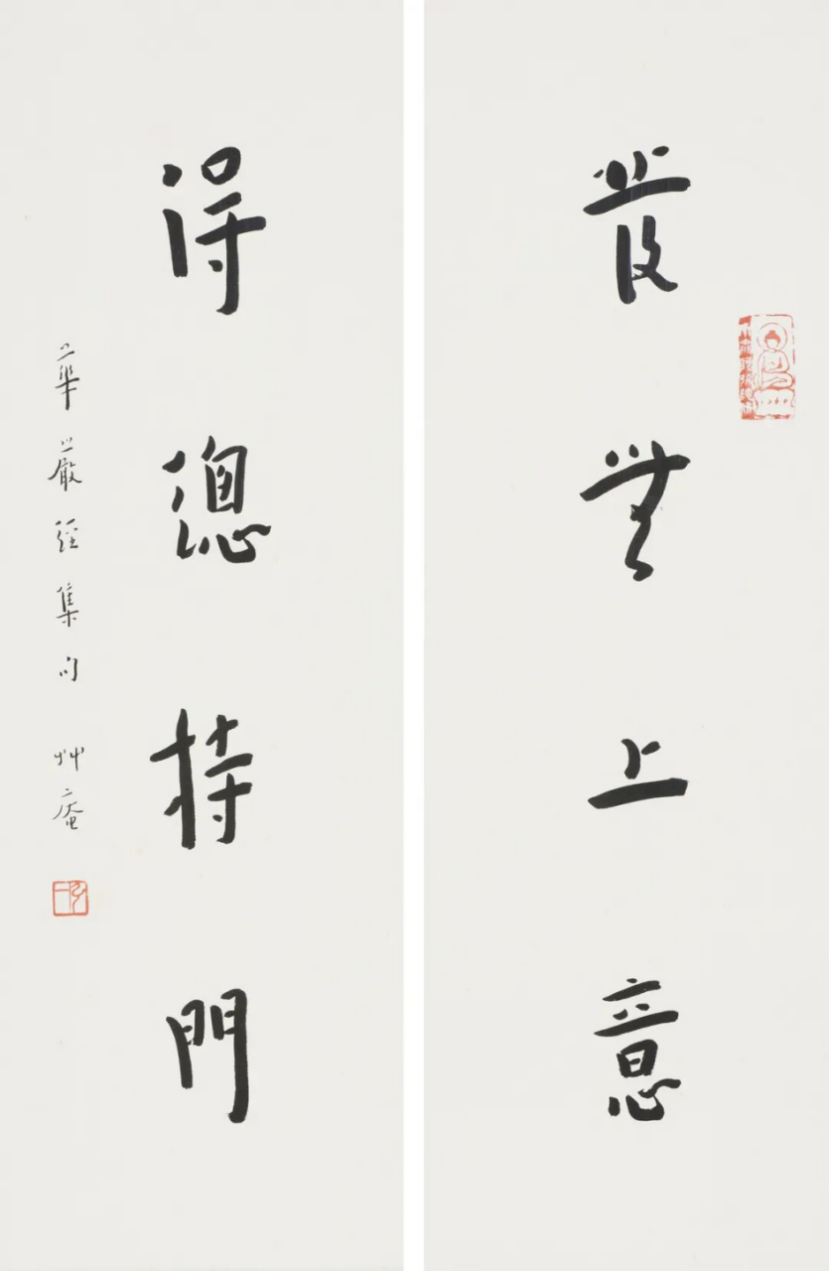 發無上意
得總持門
華嚴經集句 艸庵